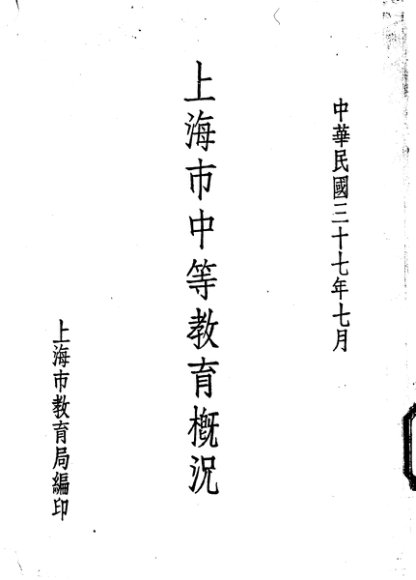 中華民國三十七年七月
上海市中等教育概況
上海市教育局編印